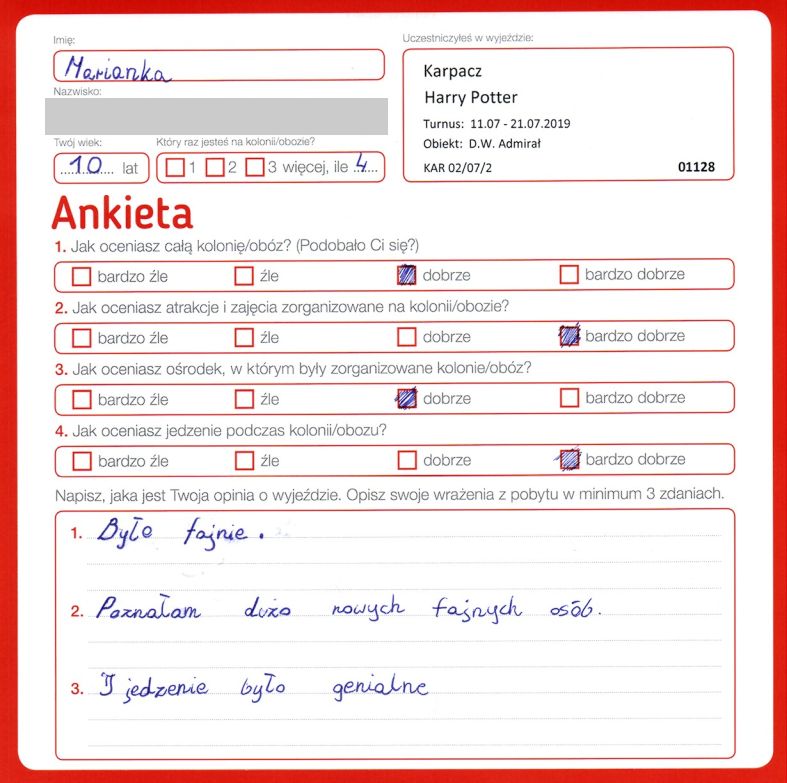 Imię:
Marianka
Nazwisko:
Twój wiek:
10 lat
Który raz jesteś na kolonii/obozie?
1 2 3 więcej, ile 4
Uczestniczyłeś w wyjeździe:
Karpacz
Harry Potter
Turnus: 11.07 - 21.07.2019
Obiekt: D.W. Admirał
KAR 02/07/2 01128
Ankieta
1. Jak oceniasz całą kolonię/obóz? (Podobało Ci się?)
bardzo źle źle dobrze bardzo dobrze
2. Jak oceniasz atrakcje i zajęcia zorganizowane na kolonii/obozie?
bardzo źle źle dobrze bardzo dobrze
3. Jak oceniasz ośrodek, w którym były zorganizowane kolonie/obóz?
bardzo źle źle dobrze bardzo dobrze
4. Jak oceniasz jedzenie podczas kolonii/obozu?
bardzo źle źle dobrze bardzo dobrze
Napisz, jaka jest Twoja opinia o wyjeździe. Opisz swoje wrażenia z pobytu w minimum 3 zdaniach.
1. Było fajnie.
2. Poznałam dużo nowych fajnych osób.
3. I jedzenie było genialne